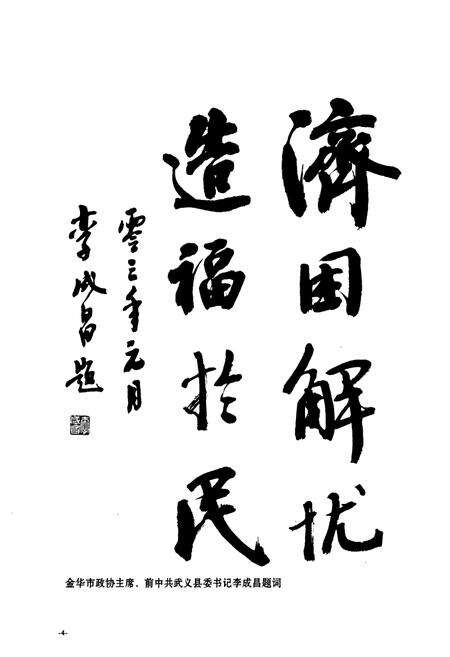 濟困解忧
造福於民
零三年元月
李成昌题
金华市政协主席、前中共武义县委书记李成昌题词
-4-